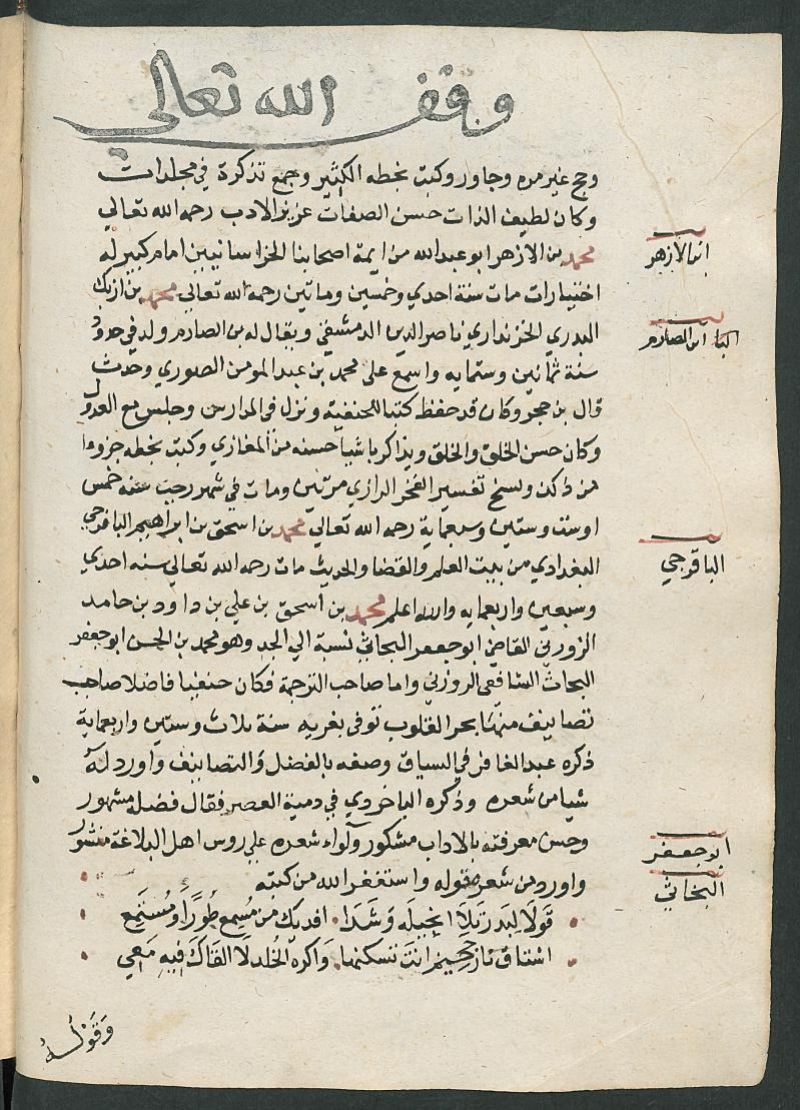 وقف الله تعالى
وحج غير مره وجاور وكتب بخطه الكثير وجمع تذكرة في مجلدات
وكان لطيف الذات حسن الصفات عزيز الادب رحمه الله تعالي
محمد بن الازهر ابو عبد الله من ايمة اصحابنا الخراسانيين امام كبير له
ابن الازهر
اختيارات مات سنة احدي وخمسين وماتين رحمه الله تعالي محمد بن ازبك
البدري الخزنداري ناصر الدين الدمشقي ويقال له بن الصارم ولد في حدود
ابن الصارم
سنة ثمانين وستمايه واسمع علي محمد بن عبد المومن الصوري وحدث
قال بن حجر وكان قد حفظ كتبا للحنفية ونزل في المدارس وجلس مع العدول
وكان حسن الخلق والخلق ويذاكر باشيا حسنه من المغازي وكتب بخطه جزوا
من ذلك ونسخ تفسير الفخر الرازي مرتين ومات في شهر رجب سنه خمس
او ست وستين وسبعماية رحمه الله تعالي محمد بن اسحق بن ابراهيم الباقرجي
البغدادي من بيت العلم والقضا والحديث مات رحمه الله تعالي سنه احدي
الباقرجي
وسبعين واربعمايه والله اعلم محمد بن اسحق بن علي بن داود بن حامد
الزوزني القاضي ابو جعفر البحاثي نسبة الي الجد وهو محمد بن الحسن ابو جعفر
البحاث الشافعي الزوزني واما صاحب الترجمة فكان حنفيا فاضلا صاحب
تصانيف منها بحر القلوب توفي بغزنه سنة ثلاث وستين واربعماية
ذكره عبد الغافر في السياق وصفه بالفضل والتصانيف واورد له
شيا من شعره وذكره الباخرزي في دمية القصر فقال فضله مشهور
وحسن معرفته بالاداب مشكور ولواء شعره علي روس اهل البلاغة منشور
ابو جعفر
واورد من شعره قوله واستغفر الله من كتبه
البحاثي
افديك من مسمع طورا ومستمع
اشتاق نار جحيم انت تسكنها واكره الخلد لا القاك فيه معي
وقوله